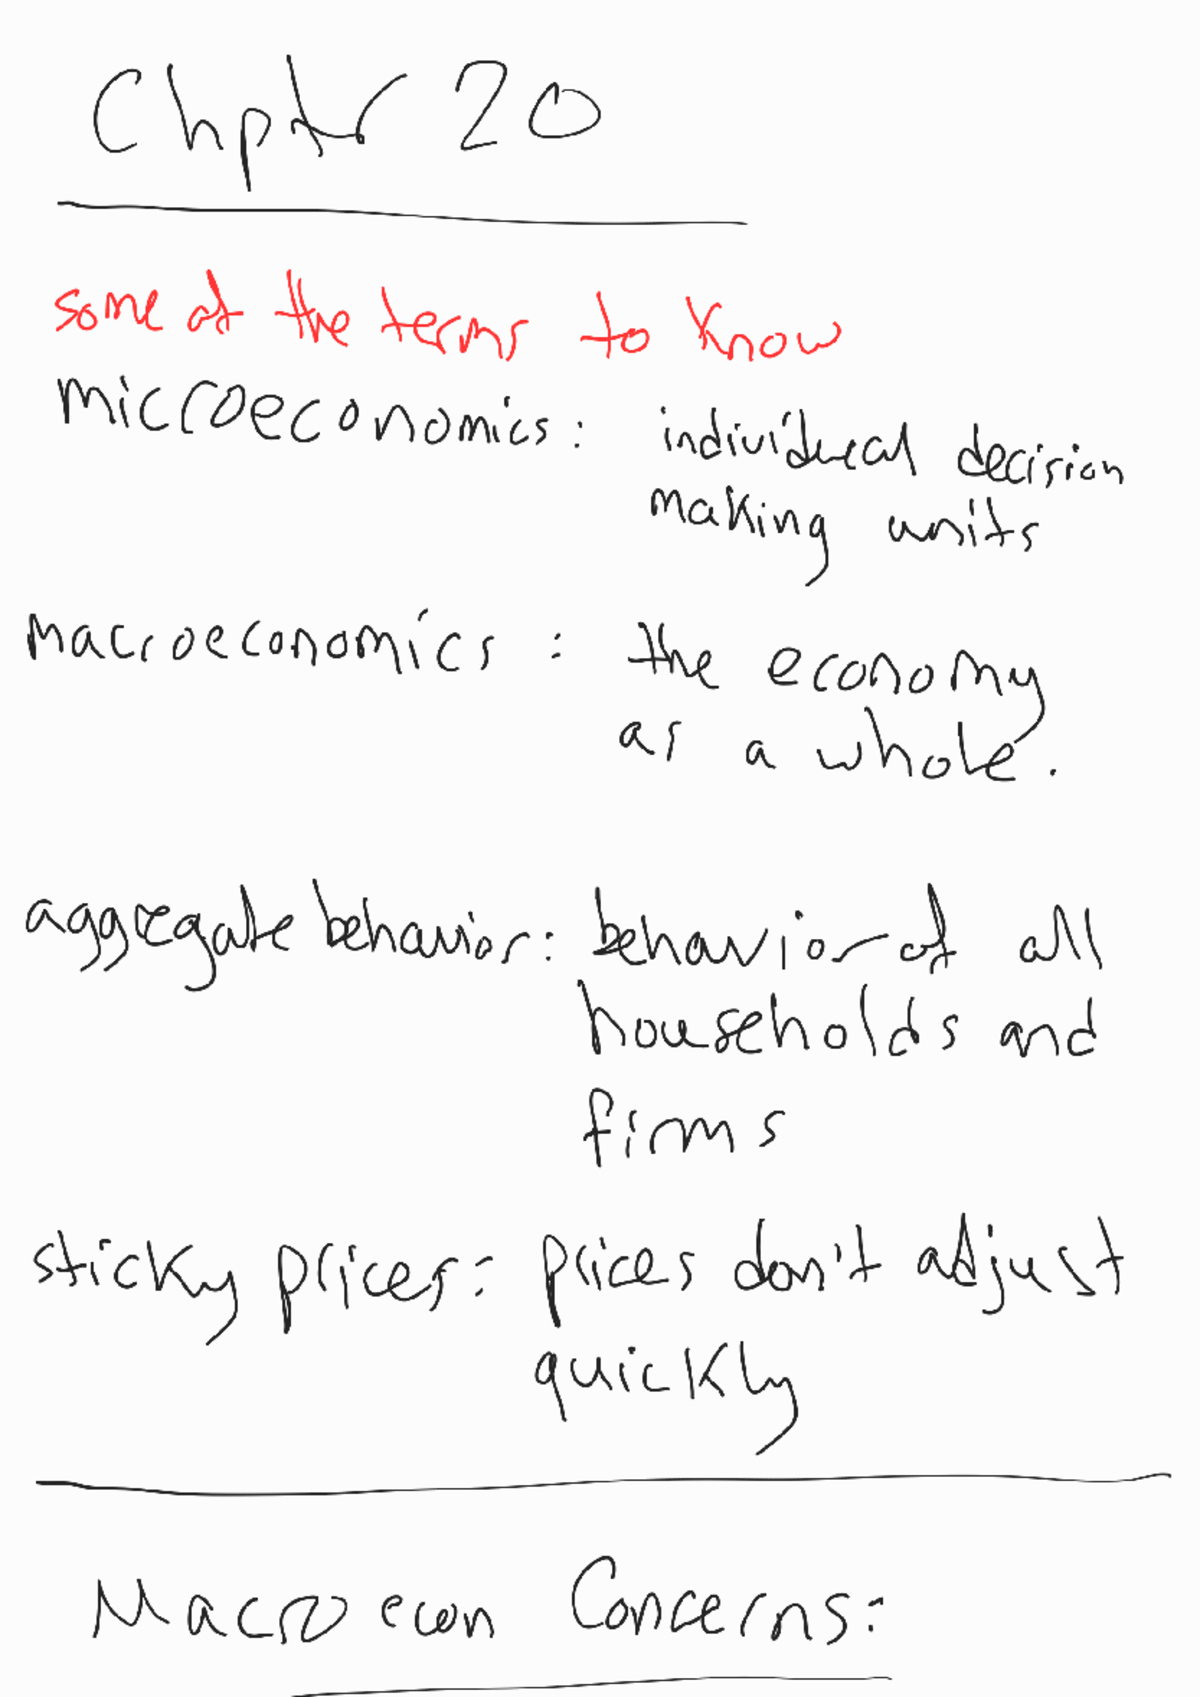 Chptr 20
some of the terms to know
microeconomics: individual decision
making units
macroeconomics: the economy
as a whole.
aggregate behavior: behavior of all
households and
firms
sticky prices: prices don't adjust
quickly
Macro econ Concerns: